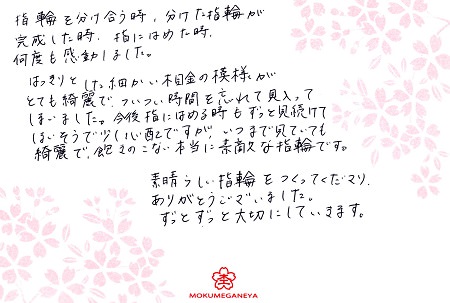 指輪を分け合う時、分けた指輪が
完成した時、指にはめた時、
何度も感動しました。
はっきりとした細かい木目金の模様が
とても綺麗で、ついつい時間を忘れて見入って
しまいました。今後指にはめる時もずっと見続けて
しまいそうで少し心配ですが、いつまで見ていても
綺麗で、飽きのこない本当に素敵な指輪です。
素晴らしい指輪をつくってくださり、
ありがとうございました。
ずっとずっと大切にしていきます。
MOKUMEGANEYA